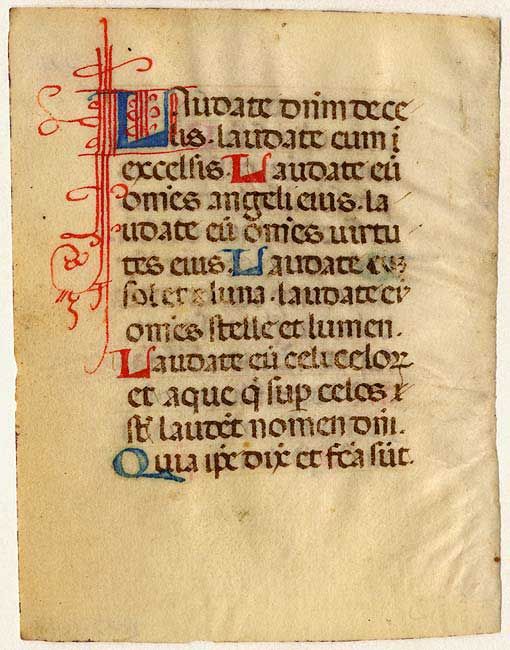 Laudate dnm de ce
lis. laudate eum ī
excelsis. Laudate eū
om̄es angeli eius. la
udate eū om̄es uirtu
tes eius. Laudate eu₃
sol et luna. laudate eū
om̄es stelle et lumen.
Laudate eū celi celoꝝ
et aque q̄ sup̄ celos
st̄ laudēt nomen dn̄i.
Quia ip̄e dix̄ et fc̄a sūt.